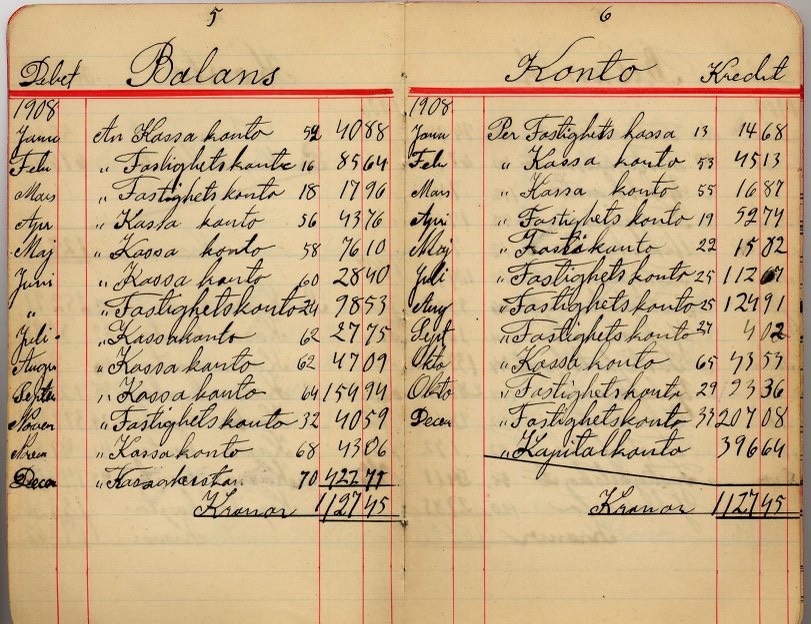 5
Debet Balans
1908
Janu An Kassa konto 52 40 88
Feb „ Fastighetskonto 16 85 64
Mars „ Fastighetskonto 18 17 96
Apr „ Kassa konto 56 43 76
Maj „ Kassa konto 58 76 10
Juni „ Kassa konto 60 28 40
„ „ Fastighetskonto 24 98 53
Juli „ Kassakonto 62 27 75
Augu „ Kassa konto 62 47 09
Septe „ Kassa konto 64 154 94
Noven „ Fastighetskonto 32 40 59
„ Kassakonto 68 43 06
Decem 70 422 77
Kronor 1127 45
6
Konto Kredit
1908
Janu Per Fastighets kassa 13 14 68
Feb „ Kassa konto 53 45 13
Mars „ Kassa konto 55 16 87
Apri „ Fastighets konto 19 52 74
Maj „ 22 15 82
Juli „ Fastighetskonto 25 112 67
Aug „ Fastighetskonto 25 124 91
Sept „ Fastighetskonto 27 4 02
Okto „ Kassa konto 65 43 53
Okto „ Fastighetskonto 29 93 36
Decem „ Fastighetskonto 207 08
„ Kapitalkonto 396 64
Kronor 1127 45